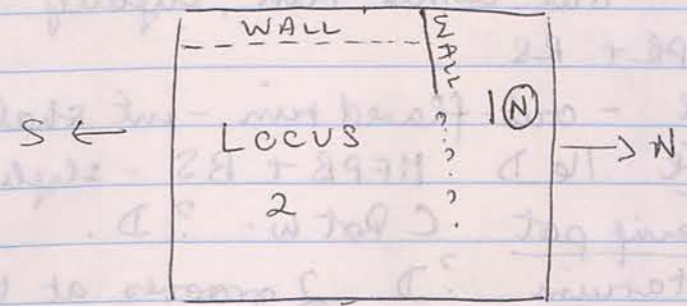 WALL
WALL
S ← LOCUS 1 Ⓝ → N
?
?
2 ?
?